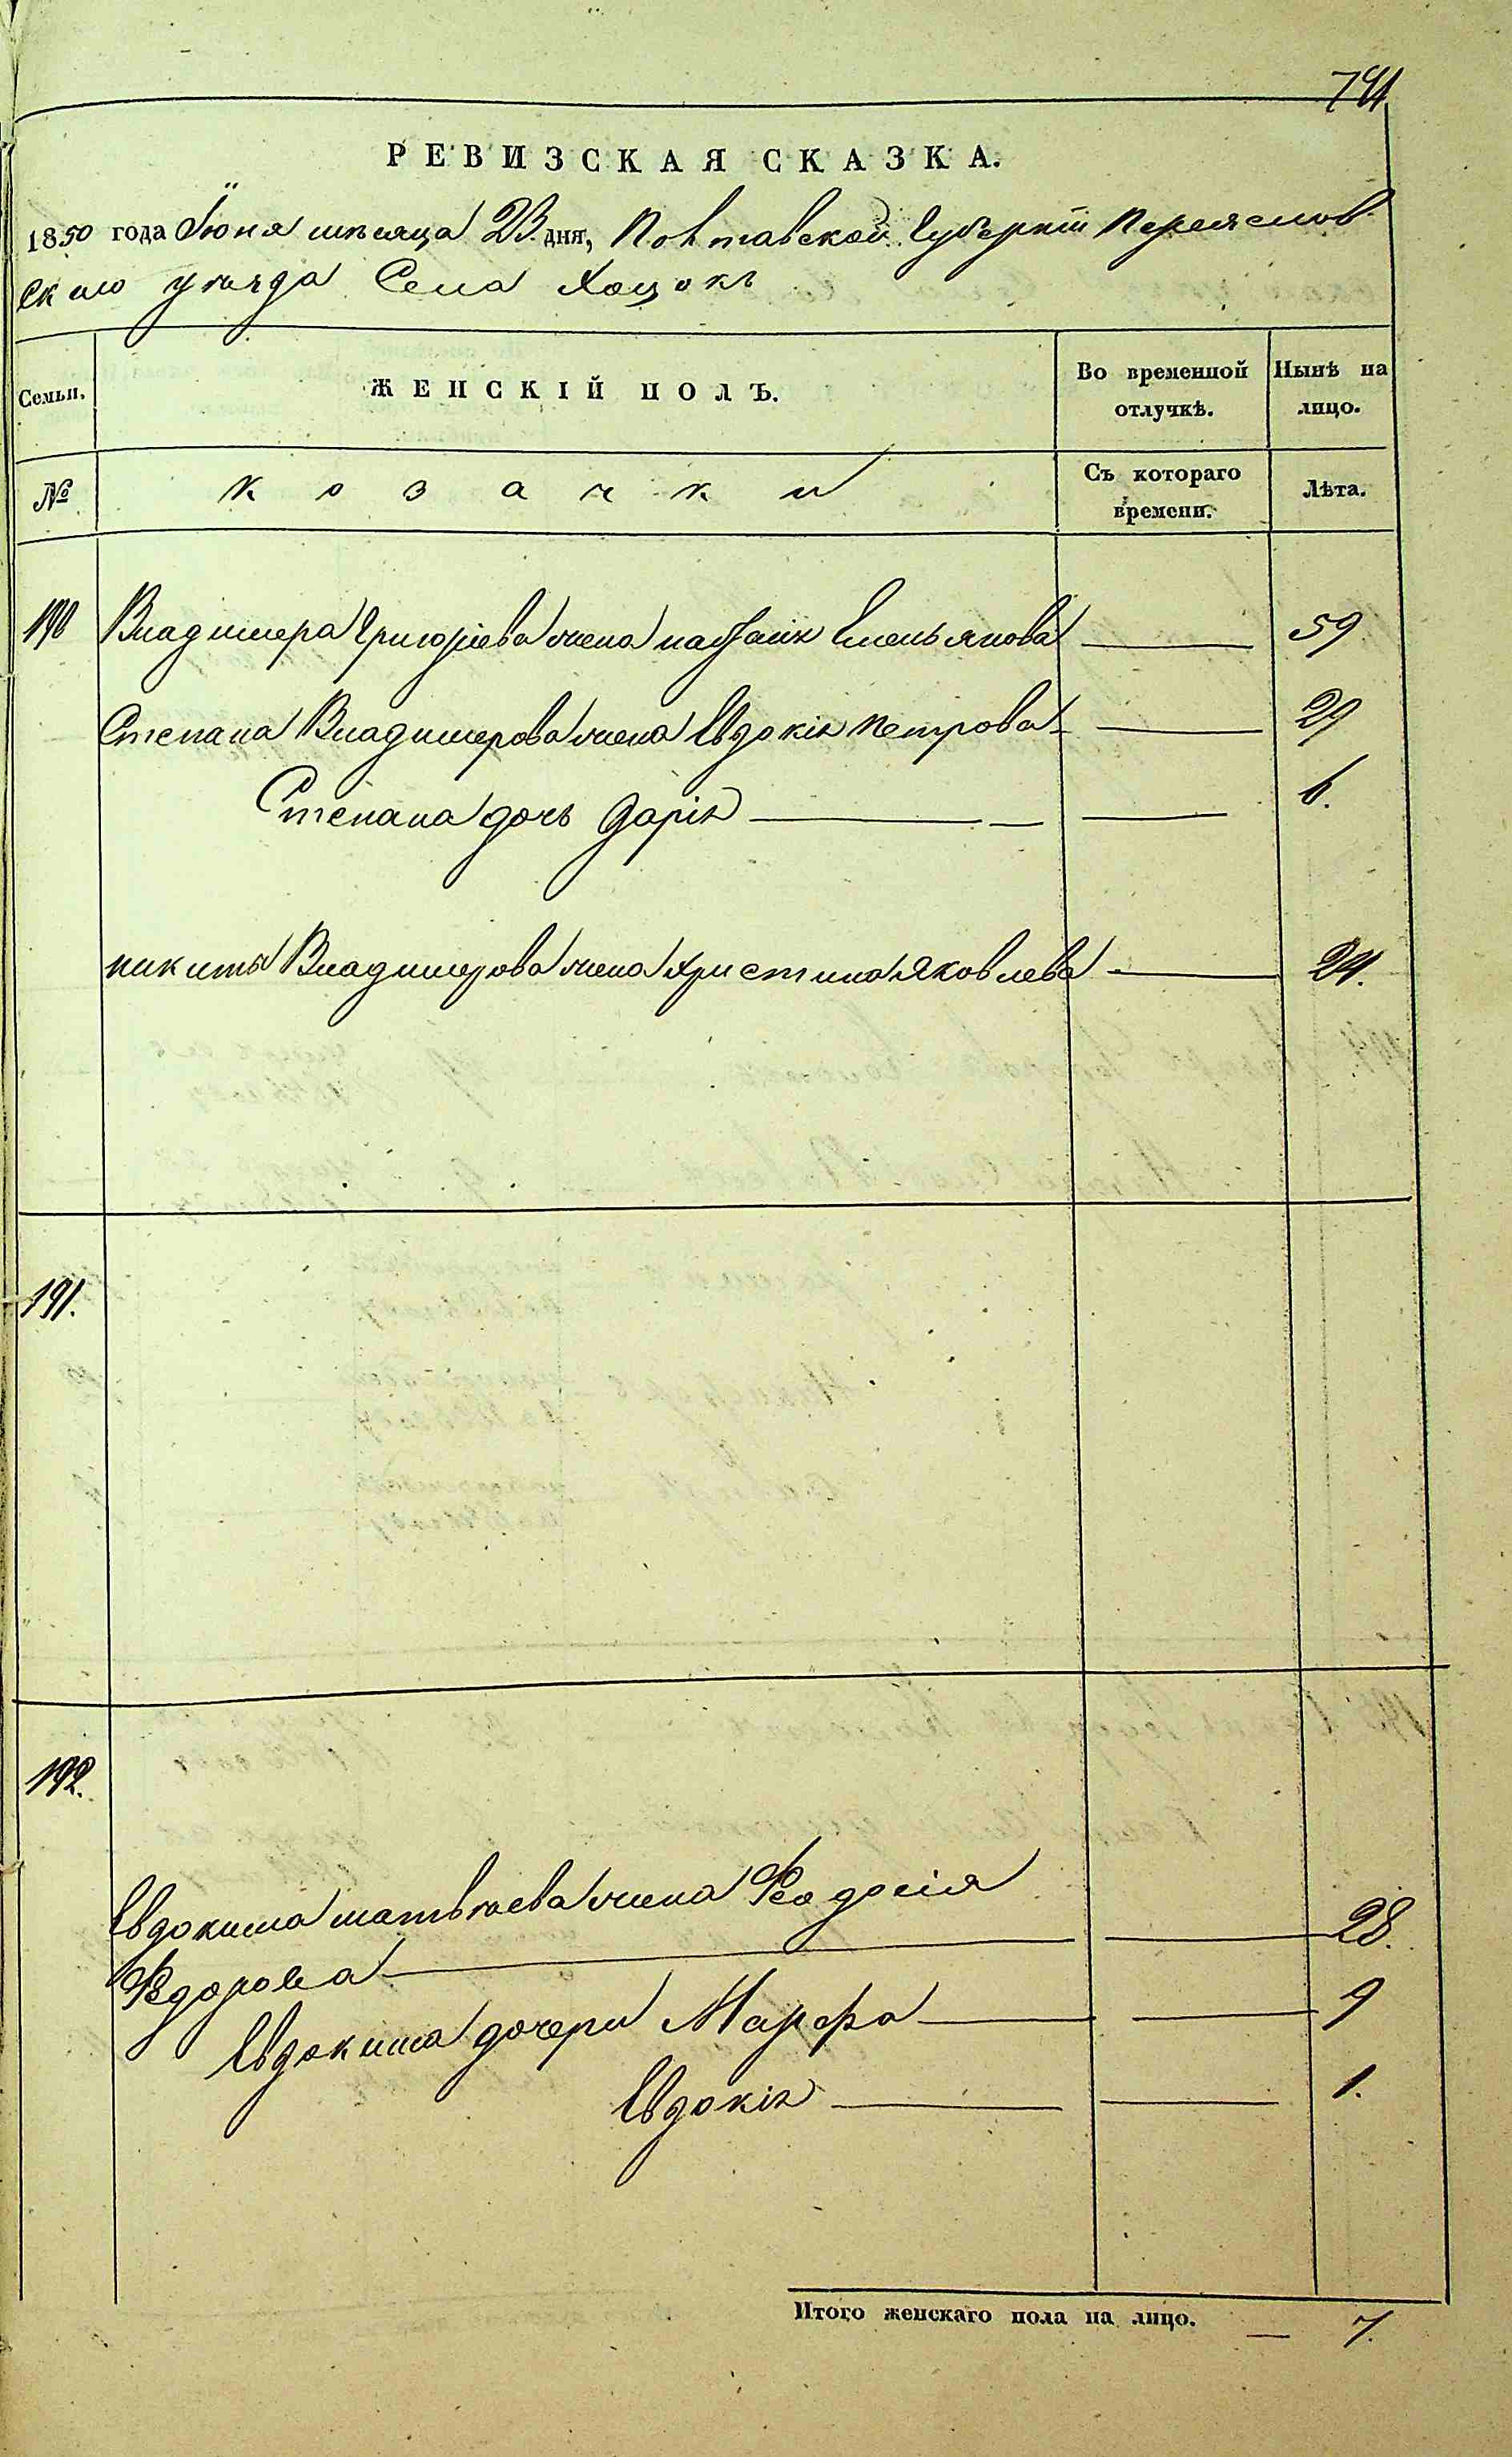 741
РЕВИЗСКАЯ СКАЗКА.
1850 года Іюня мѣсяца 23 дня, Полтавской Губерніи Переяслов
скаго уѣзда Села Хоцокъ
Семьи. ЖЕНСКІЙ ПОЛЪ. Во временной отлучкѣ. Нынѣ на лицо.
№ козачки Съ котораго времени. Лѣта.
190 Владимера Григоріева жена Емельянова 59
Степана Владимерова жена Евдокія Петрова 29
Степана дочь Дарія 6.
никиты Владимерова жена Христина Яковлева 24.
191.
192.
Евдокима матвѣева жена Феодосія
Федорова 28.
Евдокима дочери Марфа 9
Евдокія 1.
Итого женскаго пола на лицо. 7.